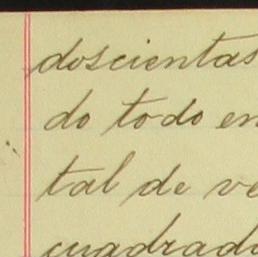 doscientas
do todo en
tal de ve
cuadrado